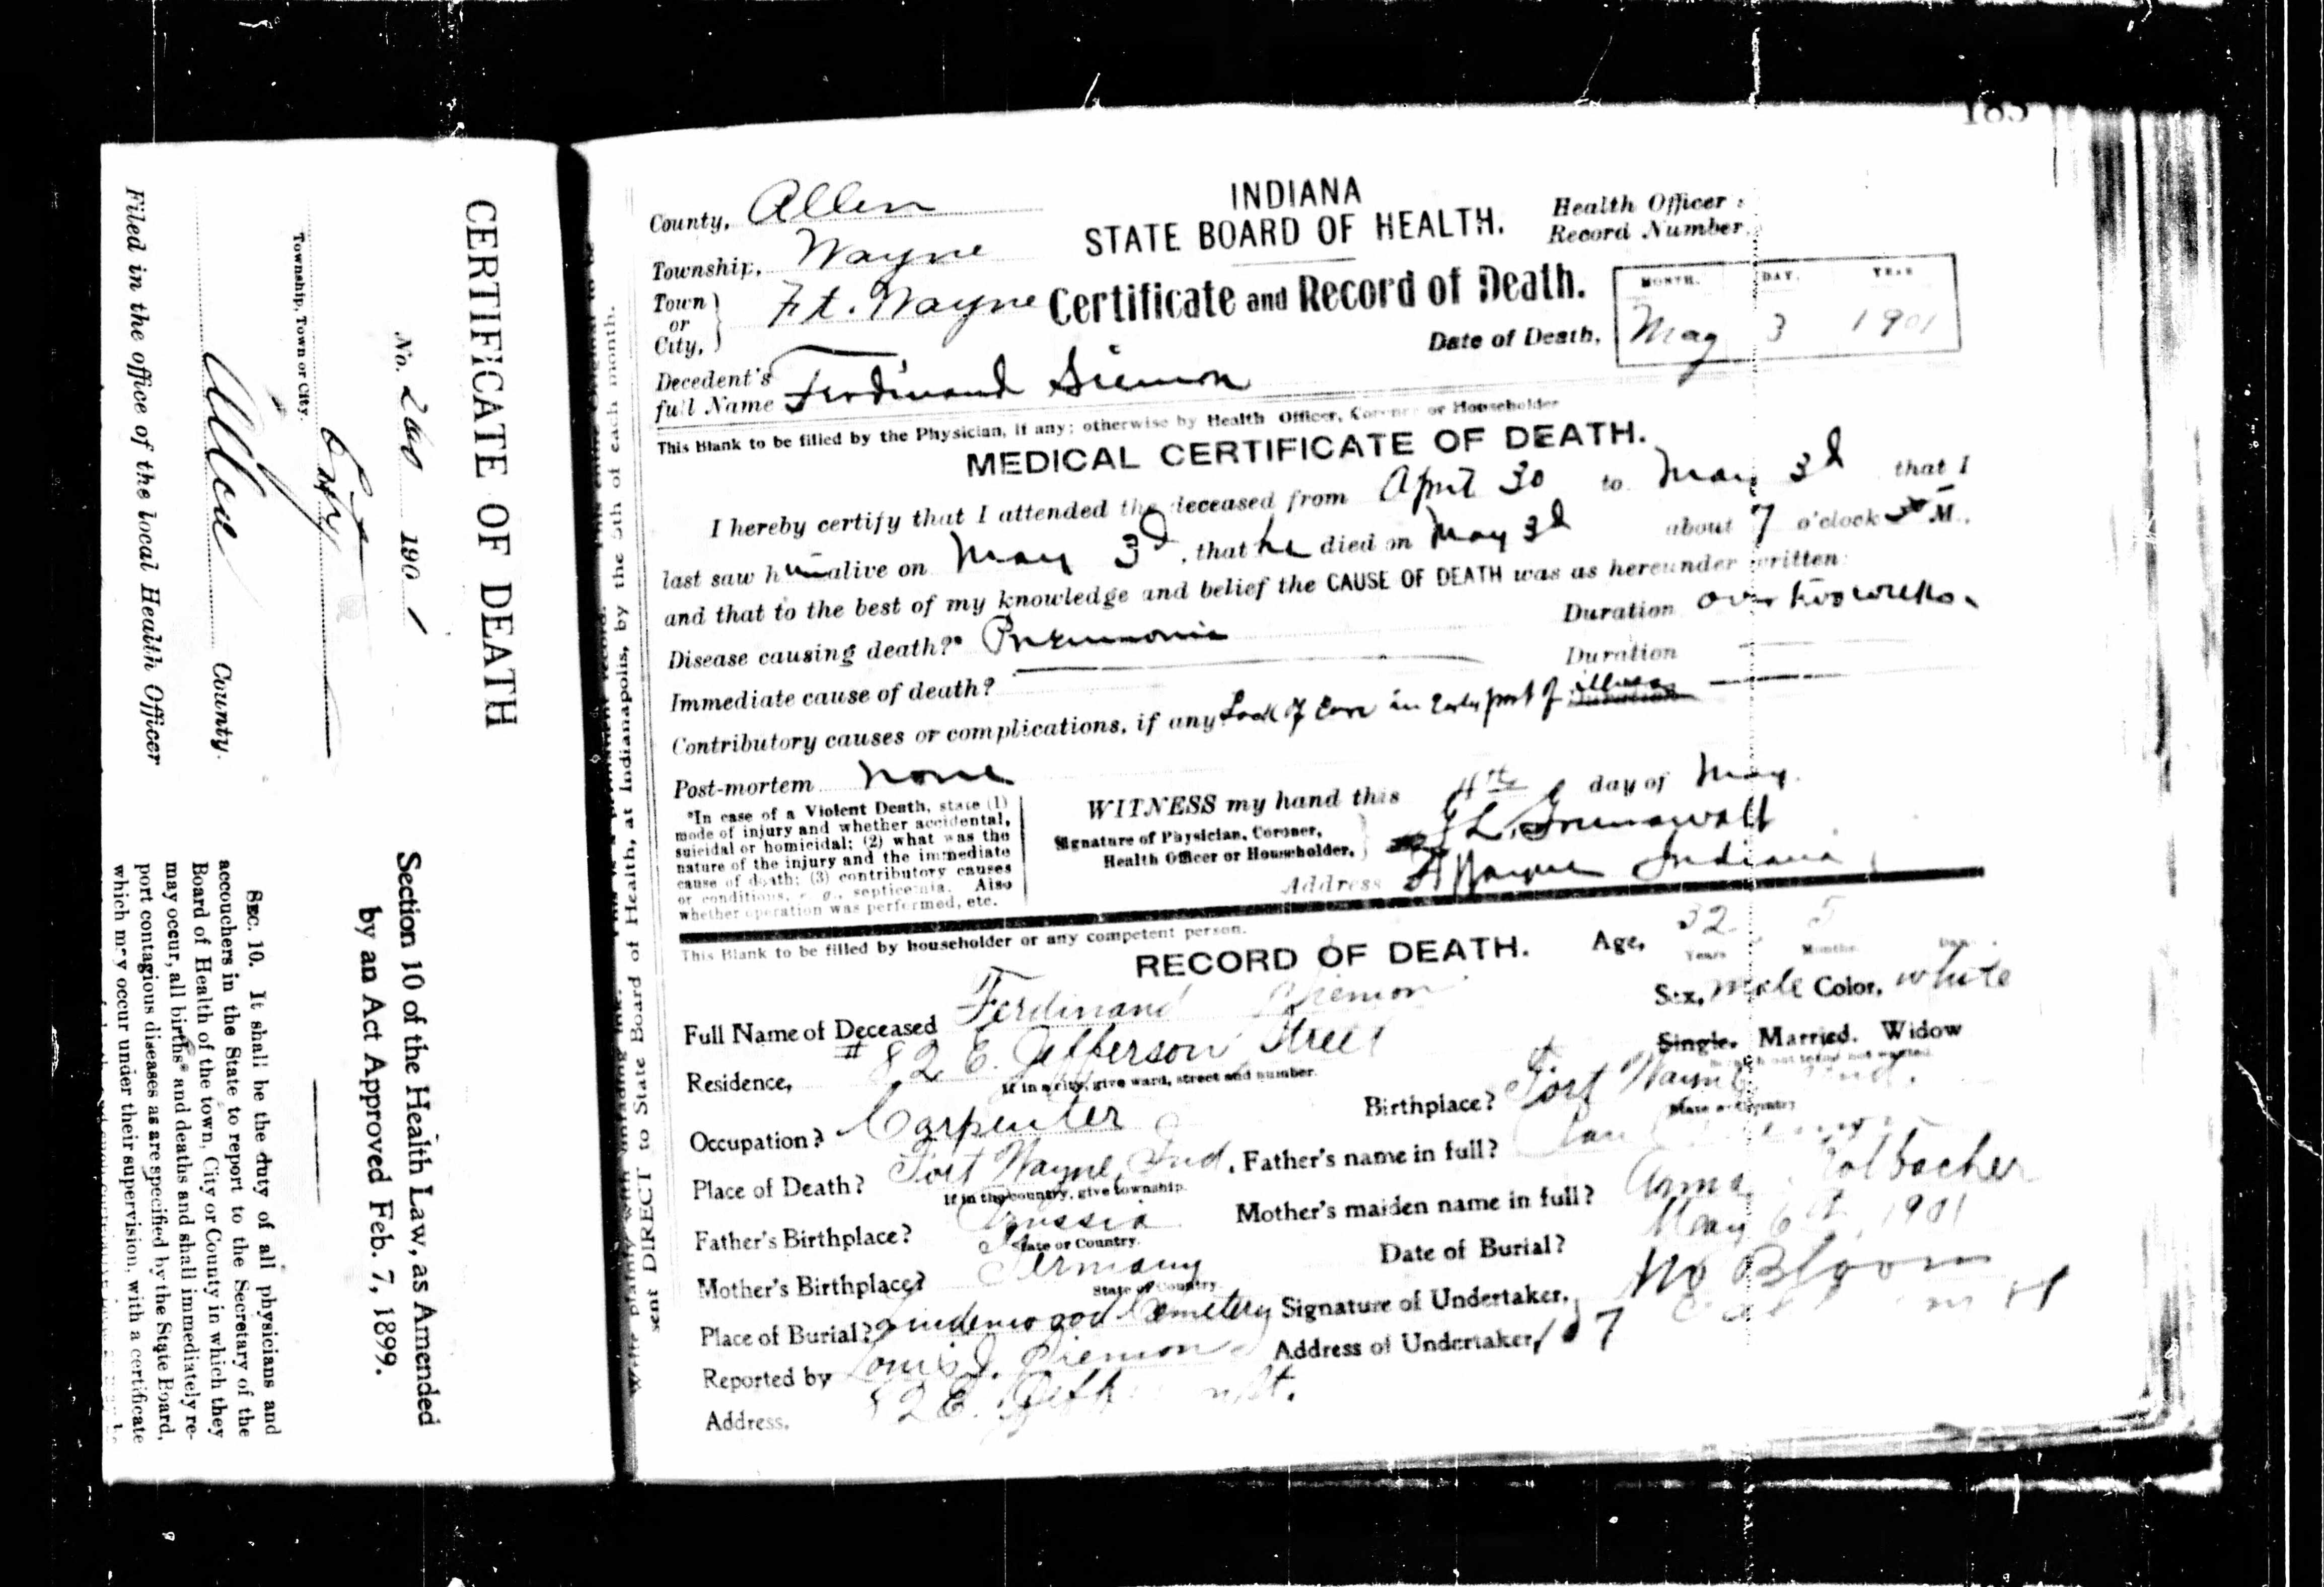 CERTIFICATE OF DEATH
No. 260 190 1
City
Township, Town or City.
Allen County.
Filed in the office of the local Health Officer
Section 10 of the Health Law, as Amended
by an Act Approved Feb. 7, 1899.
SEC. 10. It shall be the duty of all physicians and
accouchers in the State to report to the Secretary of the
Board of Health of the town, City or County in which they
may occur, all births and deaths and shall immediately re-
port contagious diseases as are specified by the State Board,
which may occur under their supervision, with a certificate
sent DIRECT to State Board of Health, at Indianapolis, by the 5th of each month.
185
INDIANA
STATE BOARD OF HEALTH.
Health Officer :
Record Number
County, Allen
Township, Wayne
Town or City, Ft. Wayne
Certificate and Record of Death.
Date of Death,
MONTH. DAY. YEAR
May 3 1901
Decedent's full Name Ferdinand Siemon
This Blank to be filled by the Physician, if any; otherwise by Health Officer, Coroner or Householder
MEDICAL CERTIFICATE OF DEATH.
I hereby certify that I attended the deceased from April 30 to May 3d that I
last saw him alive on May 3d, that he died on May 3d about 7 o'clock M.,
and that to the best of my knowledge and belief the CAUSE OF DEATH was as hereunder written:
Disease causing death?* Pneumonia Duration over two weeks.
Immediate cause of death? Duration
Contributory causes or complications, if any Lack of Care in Early part of illness
Post-mortem none
*In case of a Violent Death, state (1)
mode of injury and whether accidental,
suicidal or homicidal; (2) what was the
nature of the injury and the immediate
cause of death; (3) contributory causes
or conditions, e. g., septicemia. Also
whether operation was performed, etc.
WITNESS my hand this 4th day of May
Signature of Physician, Coroner,
Health Officer or Householder,
Address Ft Wayne Indiana
This Blank to be filled by householder or any competent person.
RECORD OF DEATH.
Age, 32 Years 5 Months Days
Full Name of Deceased Ferdinand Siemon
Sex, male Color, white
Residence, # 82 E. Jefferson Street
If in a city, give ward, street and number.
Single. Married. Widow
Occupation? Carpenter
Birthplace? Fort Wayne Ind.
State or Country
Place of Death? Fort Wayne, Ind.
If in the country, give township.
Father's name in full?
Father's Birthplace? Prussia
State or Country.
Mother's maiden name in full? Anna
Mother's Birthplace? Germany
State or Country
Date of Burial? May 6th, 1901
Place of Burial? Lindenwood Cemetery
Signature of Undertaker,
Reported by Louis J. Siemon
Address of Undertaker,
Address. 82 E. St.